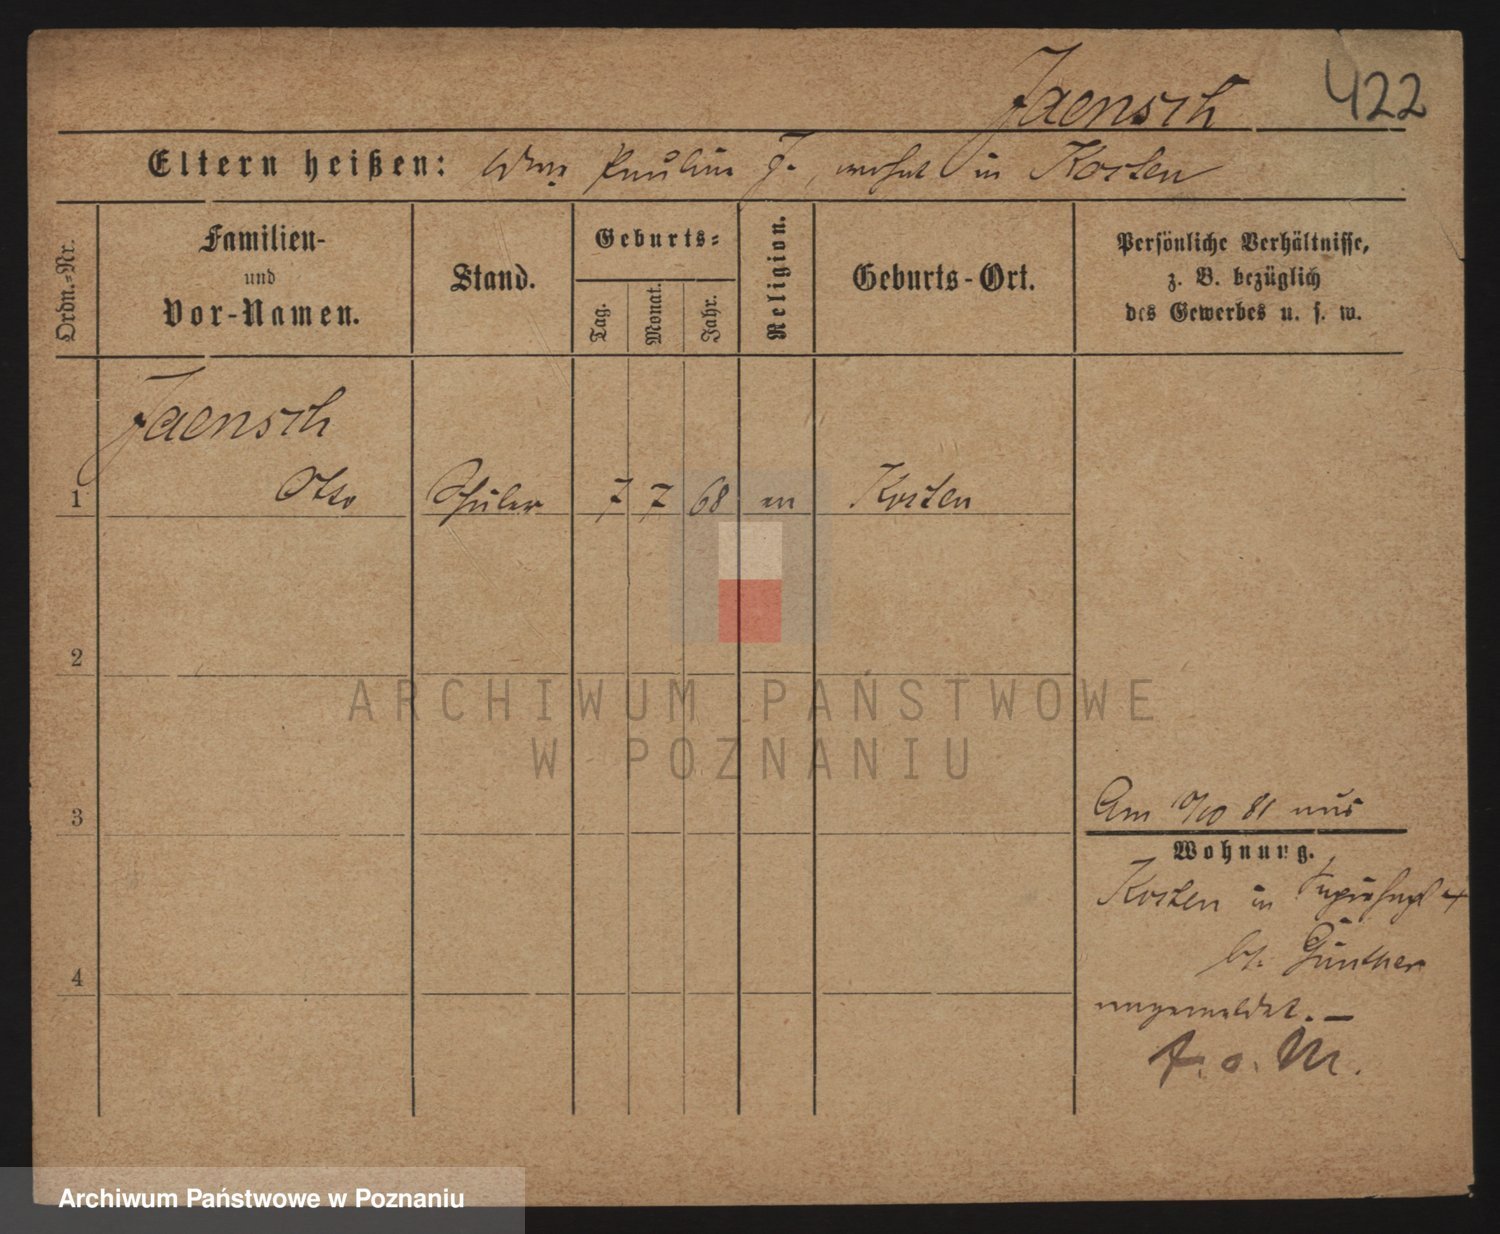 Jaensch 422
Eltern heißen: Wwe Pauline J., wohnt in Kosten
Ordn.-Nr.
Familien-
und
Vor-Namen.
Stand.
Geburts-
Tag.
Monat.
Jahr.
Religion.
Geburts-Ort.
Persönliche Verhältnisse,
z. B. bezüglich
des Gewerbes u. s. w.
Jaensch
1 Otto Schüler 7 7 68 ev Kosten
2
3
4
Am /10 81 aus
Wohnung.
Kosten in
bei Günther
angemeldet. —
A. o. M.
ARCHIWUM PAŃSTWOWE
W POZNANIU
Archiwum Państwowe w Poznaniu